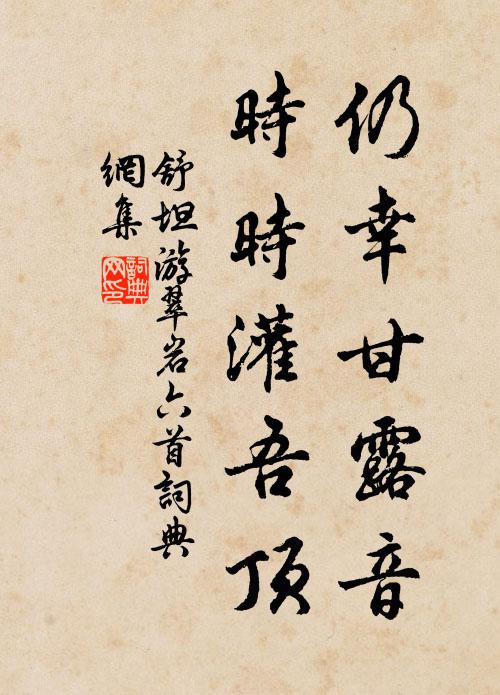 仍幸甘露音
時時灌吾頂
舒坦游翠岩六首詞典
網集
詞典
网印